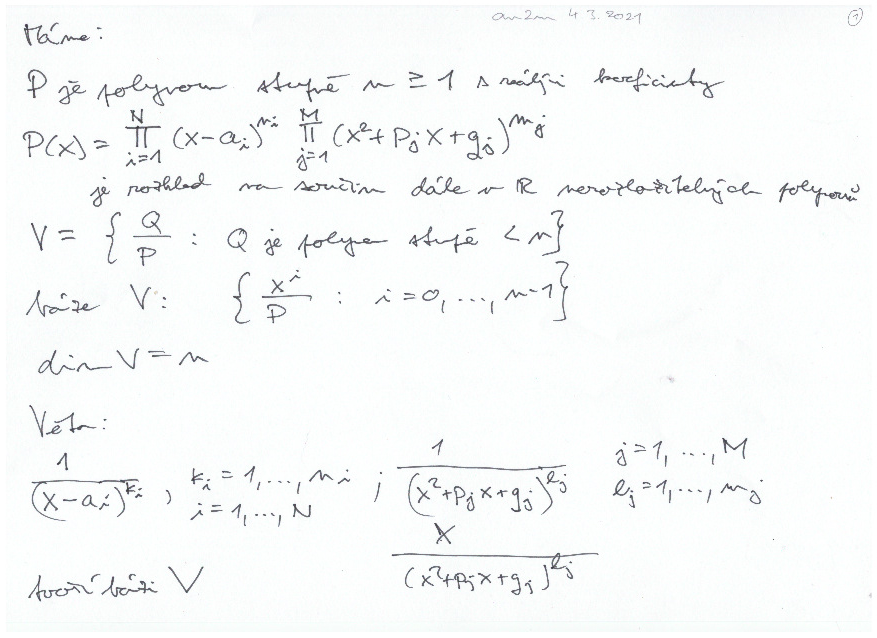 an2m 4 3. 2021 1
Máme:
P je polynom stupně n ≥ 1 s reálými koeficienty
P(x) = ∏_{i=1}^{N} (x-a_i)^{n_i} ∏_{j=1}^{M} (x²+p_j x+q_j)^{m_j}
je rozklad na součin dále v ℝ nerozložitelných polynomů
V = { Q/P : Q je polynom stupě < n }
báze V: { x^i/P : i=0, ..., n-1 }
dim V = n
Věta:
1/(x-a_i)^{k_i}, k_i = 1, ..., n_i ; i = 1, ..., N 1/(x²+p_j x+q_j)^{l_j} j=1, ..., M l_j=1, ..., m_j
x/(x²+p_j x+q_j)^{l_j}
tvoří bázi V